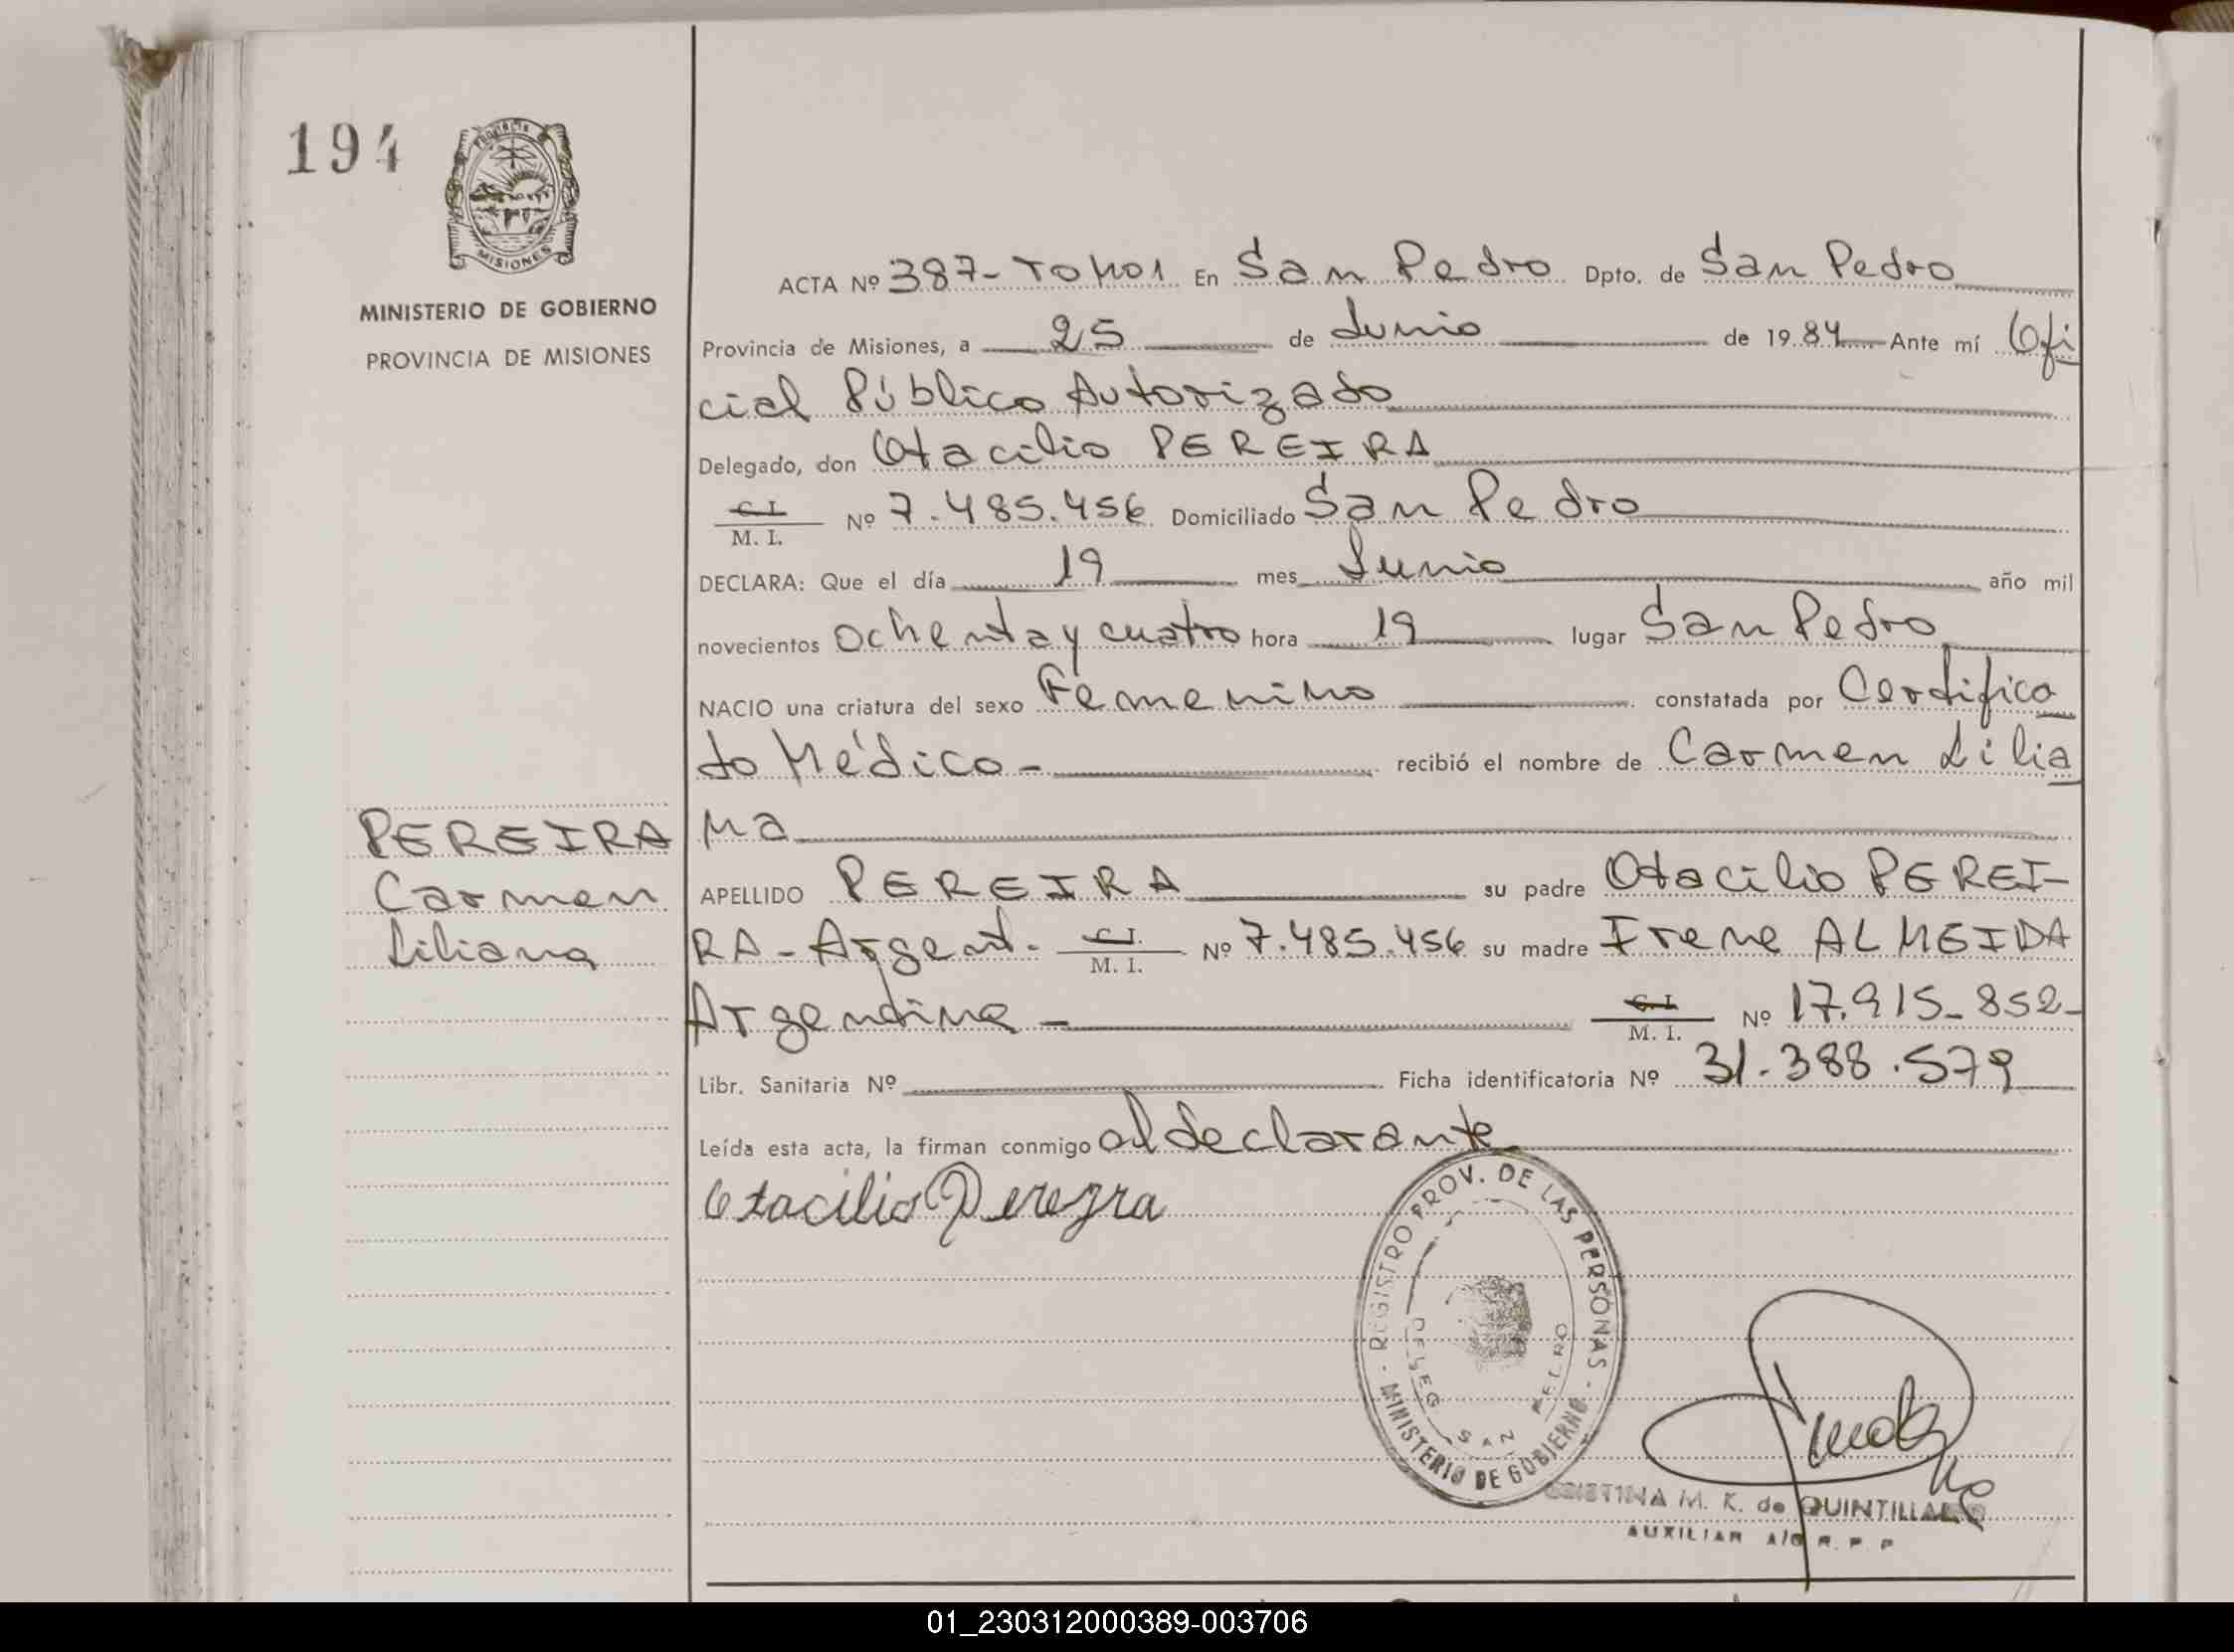 194
PROVINCIA
MISIONES
MINISTERIO DE GOBIERNO
PROVINCIA DE MISIONES
ACTA Nº 387-TOMO1 En San Pedro Dpto. de San Pedro
Provincia de Misiones, a 25 de Junio de 1984 Ante mí Ofi
cial Público Autorizado
Delegado, don Otacilio PEREIRA
C.I.
M. I. Nº 7.485.456 Domiciliado San Pedro
DECLARA: Que el día 19 mes Junio año mil
novecientos Ochenta y cuatro hora 19 lugar San Pedro
NACIO una criatura del sexo Femenino constatada por Certifica
do Médico- recibió el nombre de Carmen Lilia
na
APELLIDO PEREIRA su padre Otacilio PEREI-
RA-Argent. C.I. M. I. Nº 7.485.456 su madre Irene ALMEIDA
Argentina - C.I. M. I. Nº 17.915-852-
Libr. Sanitaria Nº Ficha identificatoria Nº 31.388.579
Leída esta acta, la firman conmigo el declarante
Otacilio Pereyra
PEREIRA
Carmen
Liliana
REGISTRO PROV. DE LAS PERSONAS - MINISTERIO DE GOBIERNO -
DELEG SAN PEDRO
CRISTINA M. K. de QUINTILLAN
AUXILIAR A/C R. P. P
01_230312000389-003706